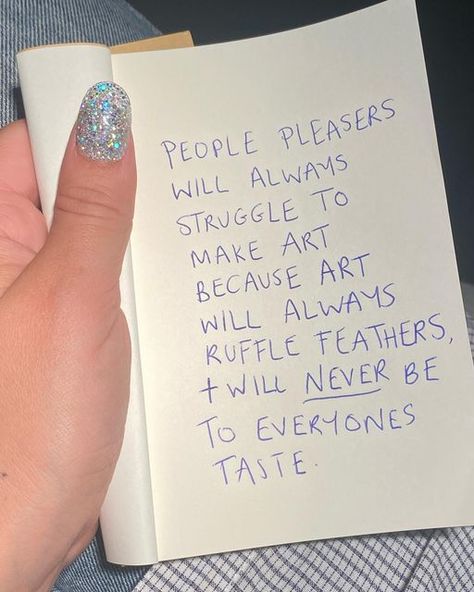 PEOPLE PLEASERS
WILL ALWAYS
STRUGGLE TO
MAKE ART
BECAUSE ART
WILL ALWAYS
RUFFLE FEATHERS,
+ WILL NEVER BE
TO EVERYONES
TASTE.